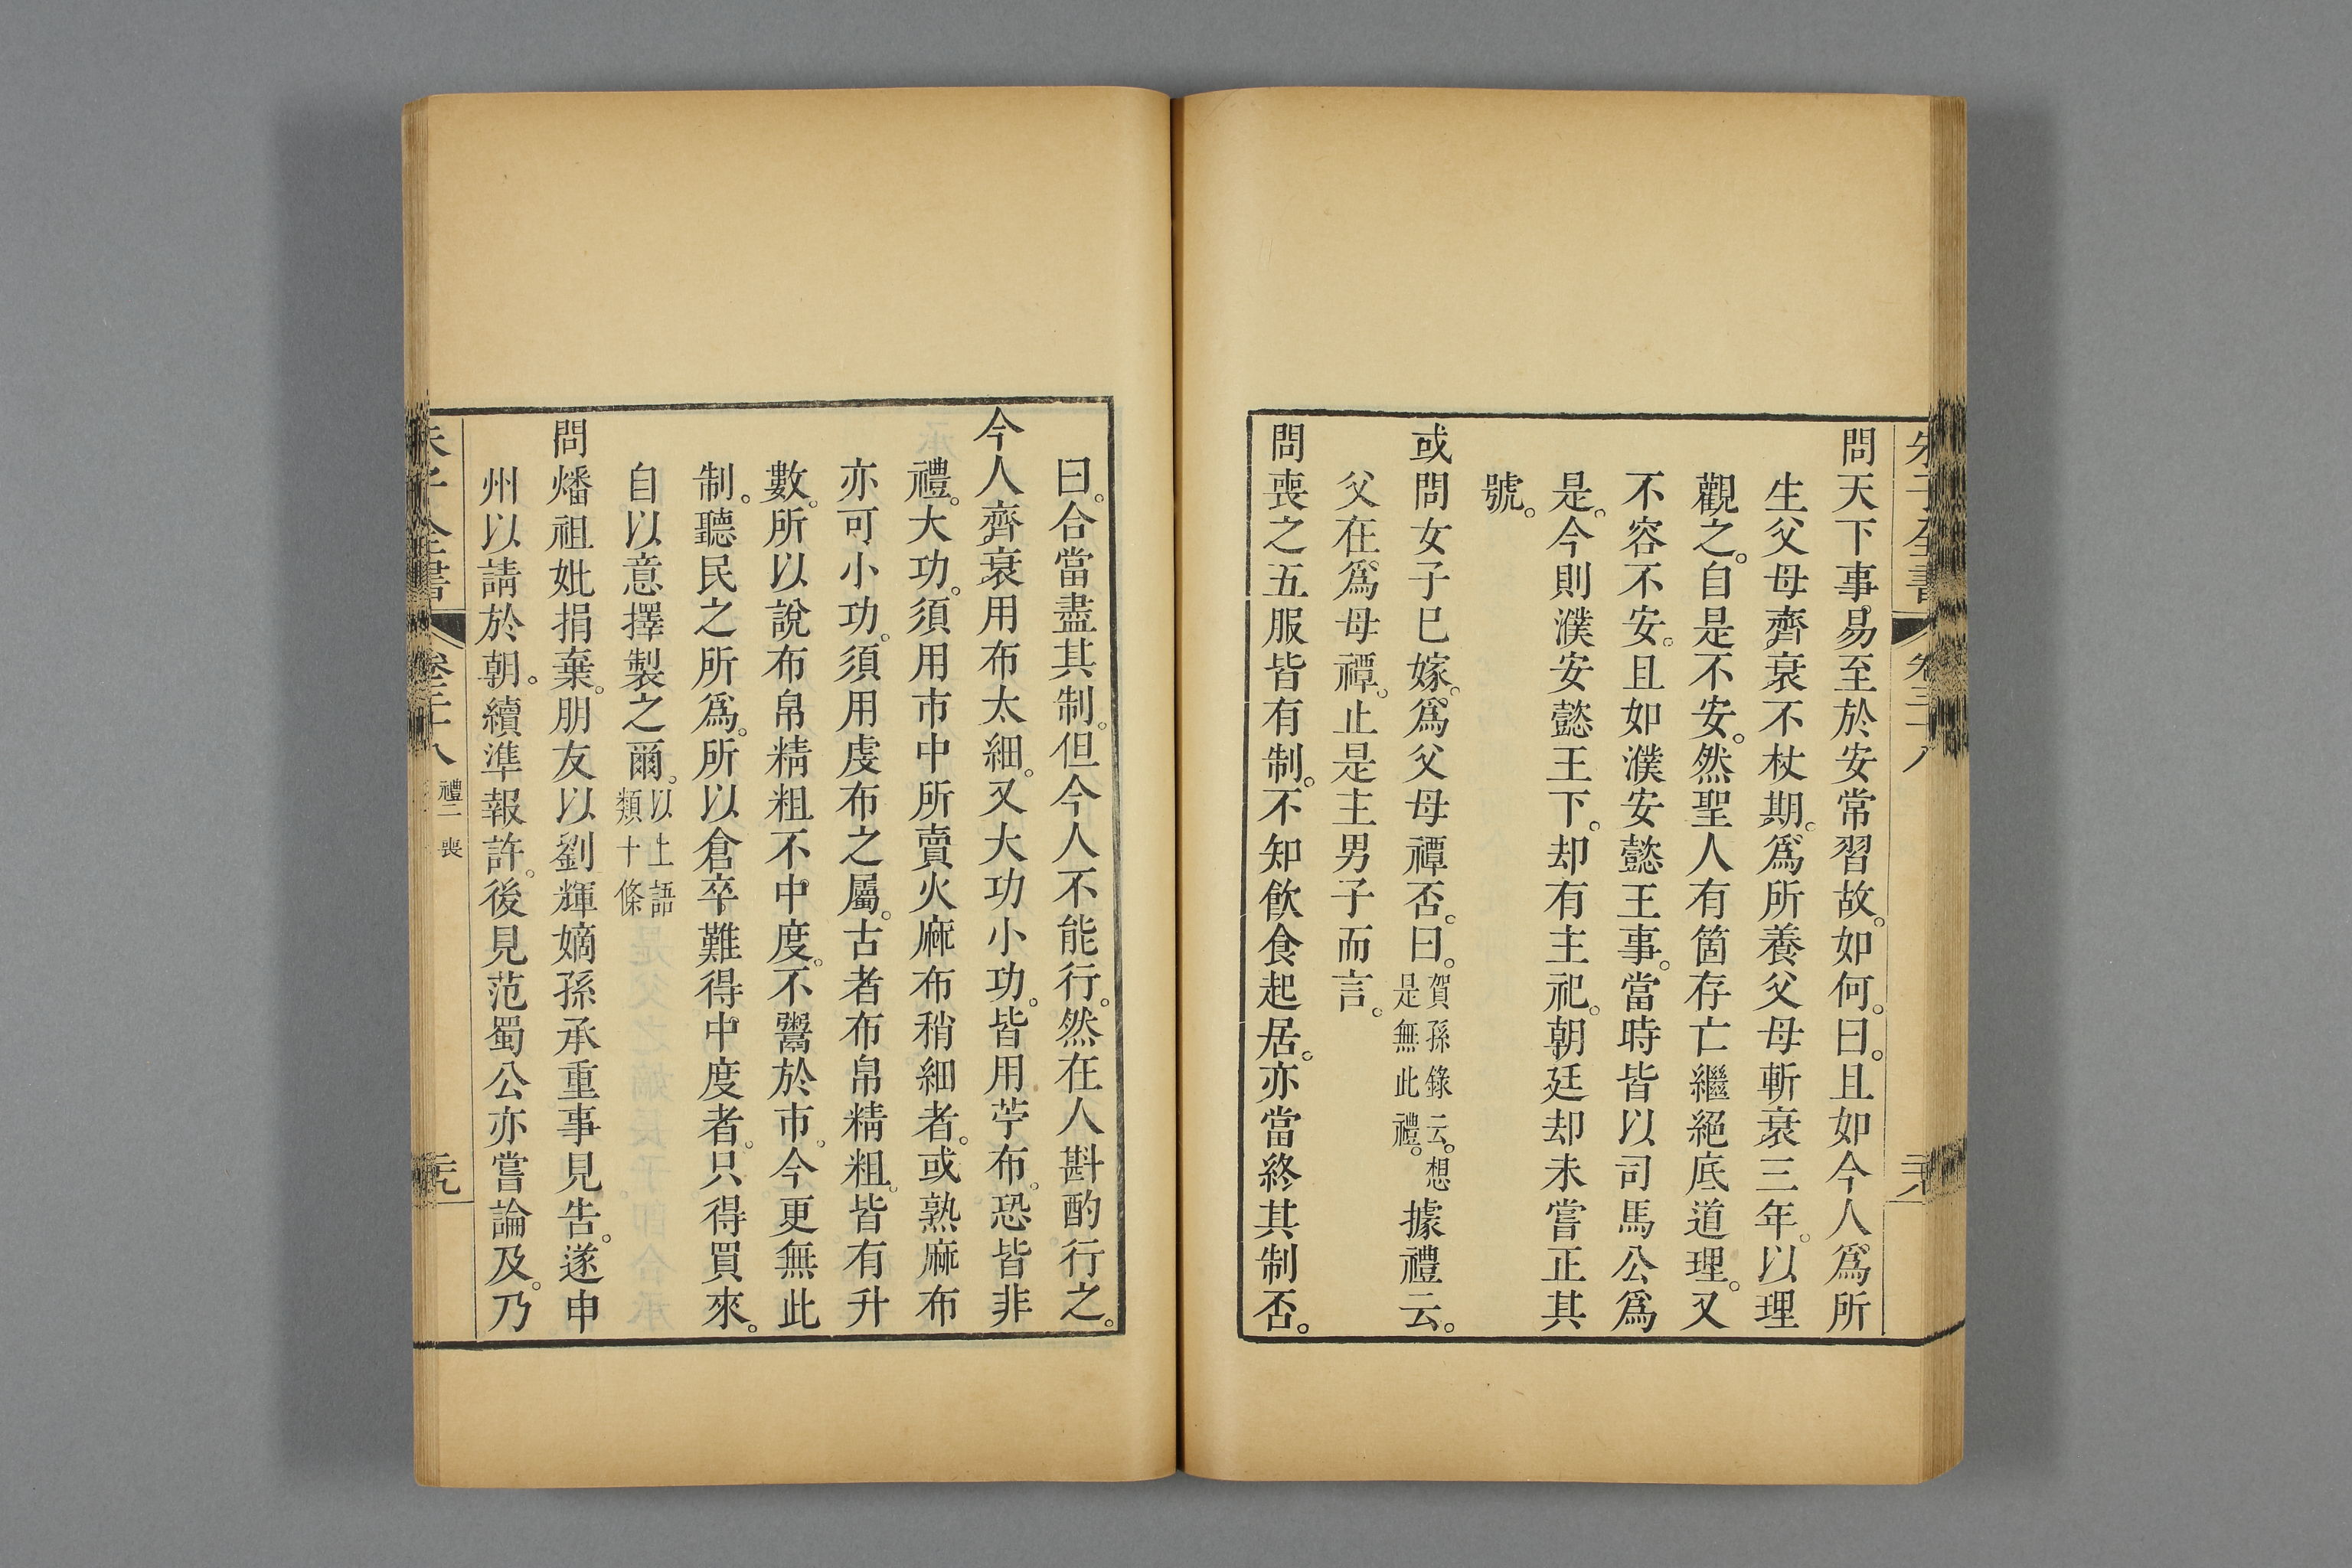 問天下事易至於安常習故。如何。曰。且如今人爲所
生父母齊衰不杖期。爲所養父母斬衰三年。以理
觀之。自是不安。然聖人有箇存亡繼絕底道理。又
不容不安。且如濮安懿王事。當時皆以司馬公爲
是。今則濮安懿王下。却有主祀。朝廷却未嘗正其
號。
或問女子已嫁。爲父母禫否。曰。賀孫錄云。想是無此禮。據禮云。
父在爲母禫。止是主男子而言。
問喪之五服皆有制。不知飲食起居。亦當終其制否。
曰。合當盡其制。但今人不能行。然在人斟酌行之。
今人齊衰用布太細。又大功小功。皆用苧布。恐皆非
禮。大功。須用市中所賣火麻布稍細者。或熟麻布
亦可小功。須用虔布之屬。古者布帛精粗。皆有升
數。所以說布帛精粗不中度。不鬻於市。今更無此
制。聽民之所爲。所以倉卒難得中度者。只得買來。
自以意擇製之爾。以上語類十條
問燔祖妣捐棄。朋友以劉輝嫡孫承重事見告。遂申
州以請於朝。續準報許。後見范蜀公亦嘗論及。乃
朱子全書
卷三十八
禮二 喪